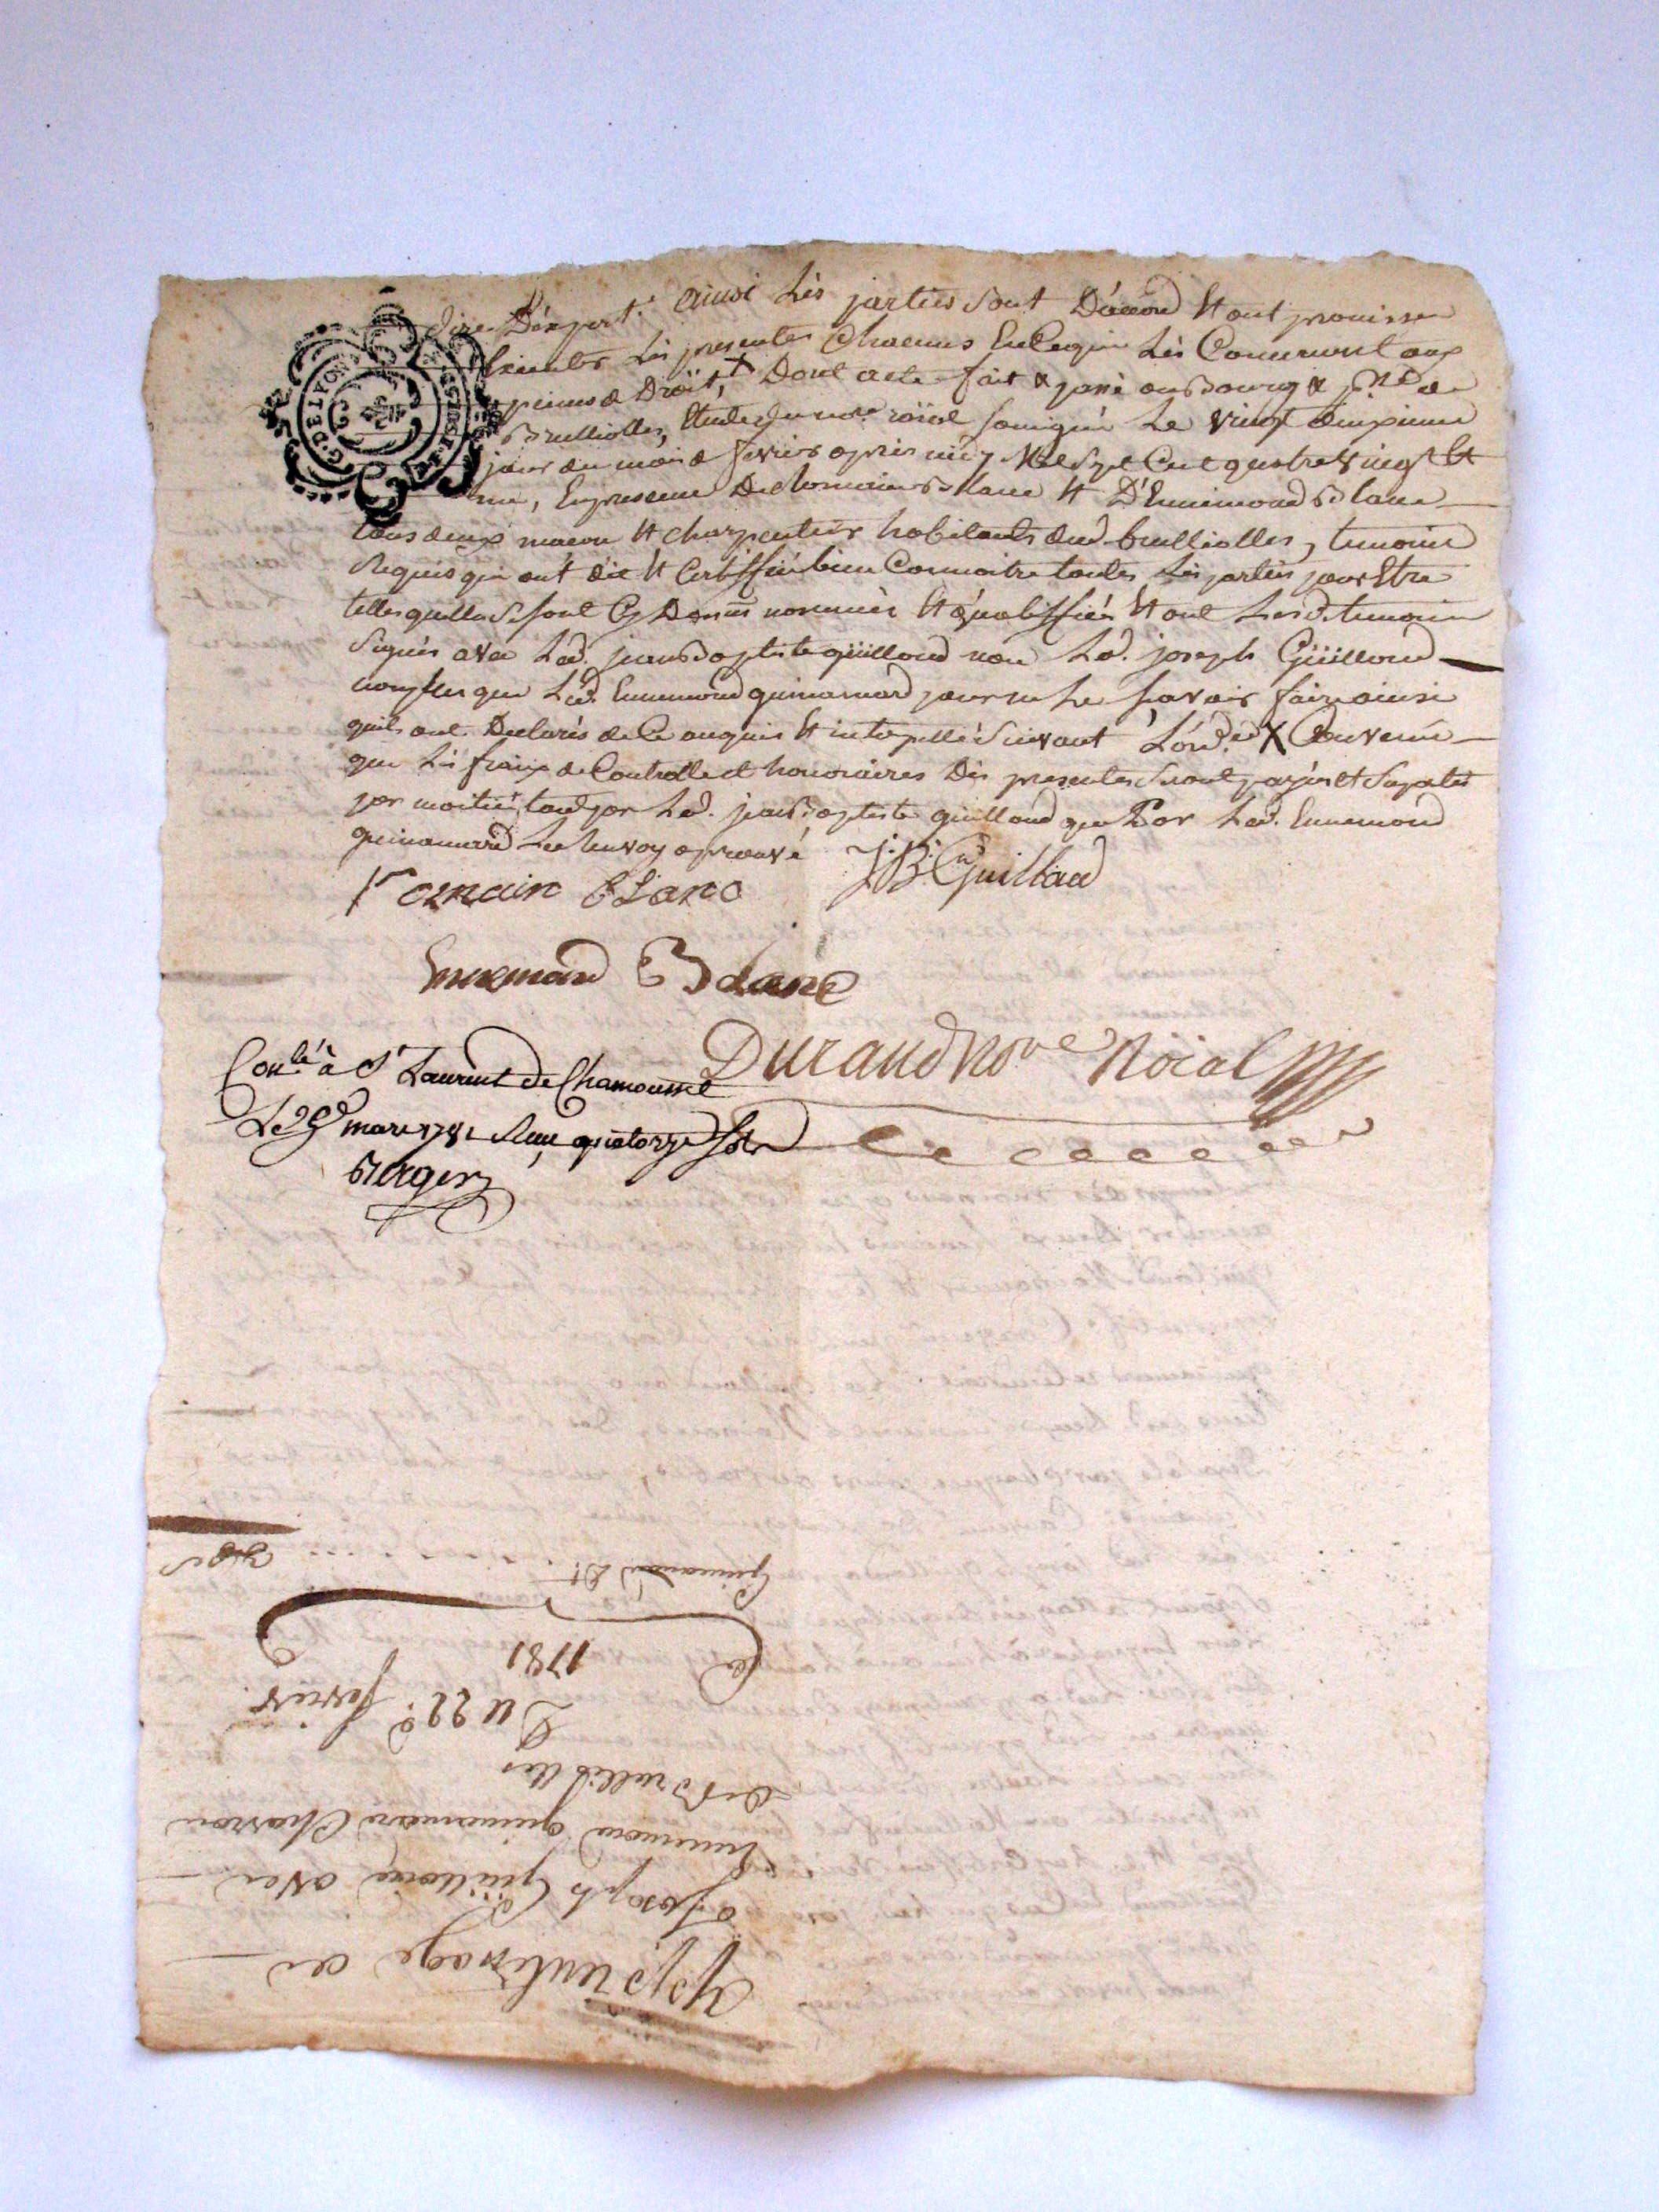 dire Déxpert. ainsi Lès parties sont Dáccord Et ont promis
Executer Lès presentes Chacuns En Ce qui Lès Concernent aux
peines de Droit,+ Dont acte fait & passé au Bourg & psse de
Brulliolles, Etude du nore roïal soussigné Le vingt deuxieme
jour du mois de fevrier après midy Mil Sept Cent quatre vingt Et
un, En presence De Romain Blanc Et D'Ennemond Blanc
tous deux macon Et charpentier habitants dud. brulliolles, temoins
Requis qui ont dit Et Certiffié bien Connoitre toutes Lès parties pour Etre
telles quelles se sont Cy Dessus nommées Et qualiffiées Et ont Lesd. temoins
Signés avec Led. jean Baptiste güilloud non Led. joseph Güilloud
non plus que Led. Ennemond guinamard pour ne Le sçavoir faire ainsi
quils ont Declarés de Ce enquis Et interpellés suivant L'ord.ce X Convenu
que Lès fraix de Controlle et honoraires Dès presentes seront payés et Suportés
par moitié, tant par Led. jean Baptiste güilloud que Par Led. Ennemond
guinamard Le renvoy aprouvé
romain BLanc J:B: Guilloud
Ennemond Blanc
Durand Nore Roïal
Conlé à St Laurent de Chamousset
Le 9e mars 1781 Reçu quatorze sols
Bergery
Apprentissage de
Joseph Güilloud avec
Ennemond guinamard Charron
de Brulliolles
Du 22e fevrier
1781
Guinamard Dt